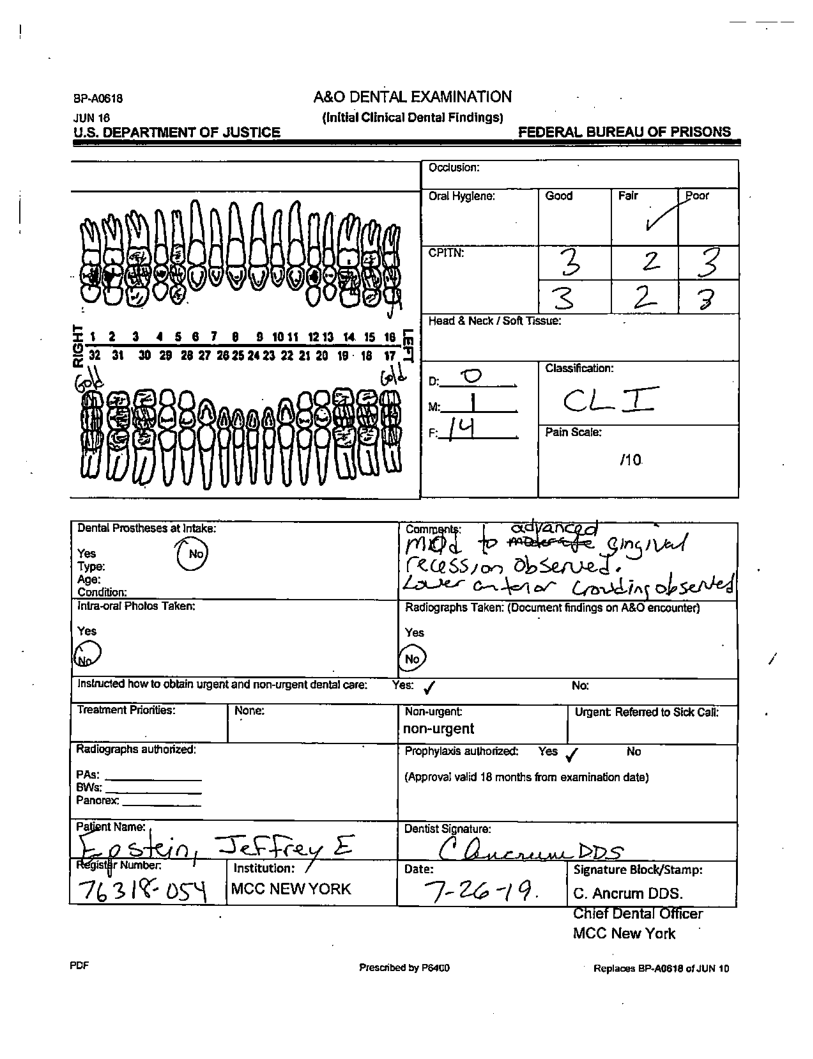 BP-A0618
A&O DENTAL EXAMINATION
JUN 16
(Initial Clinical Dental Findings)
U.S. DEPARTMENT OF JUSTICE
FEDERAL BUREAU OF PRISONS
Occlusion:
Oral Hygiene: Good Fair ✓ Poor
CPITN: 3 2 3
3 2 3
Head & Neck / Soft Tissue:
RIGHT
1 2 3 4 5 6 7 8 9 10 11 12 13 14 15 16
32 31 30 29 28 27 26 25 24 23 22 21 20 19 18 17
LEFT
Gold Gold
D: 0
M: 1
F: 14
Classification:
CL I
Pain Scale:
/10
Dental Prostheses at Intake:
Yes No
Type:
Age:
Condition:
Comments: advanced
to moderate gingival
recession observed.
Lower anterior crowding observed
Intra-oral Photos Taken:
Yes
No
Radiographs Taken: (Document findings on A&O encounter)
Yes
No
Instructed how to obtain urgent and non-urgent dental care: Yes: ✓ No:
Treatment Priorities: None: Non-urgent: Urgent: Referred to Sick Call:
non-urgent
Radiographs authorized:
PAs:
BWs:
Panorex:
Prophylaxis authorized: Yes ✓ No
(Approval valid 18 months from examination date)
Patient Name:
Epstein, Jeffrey E
Dentist Signature:
C Ancrum DDS
Register Number:
76318-054
Institution:
MCC NEW YORK
Date:
7-26-19.
Signature Block/Stamp:
C. Ancrum DDS.
Chief Dental Officer
MCC New York
PDF
Prescribed by P6400
Replaces BP-A0618 of JUN 10